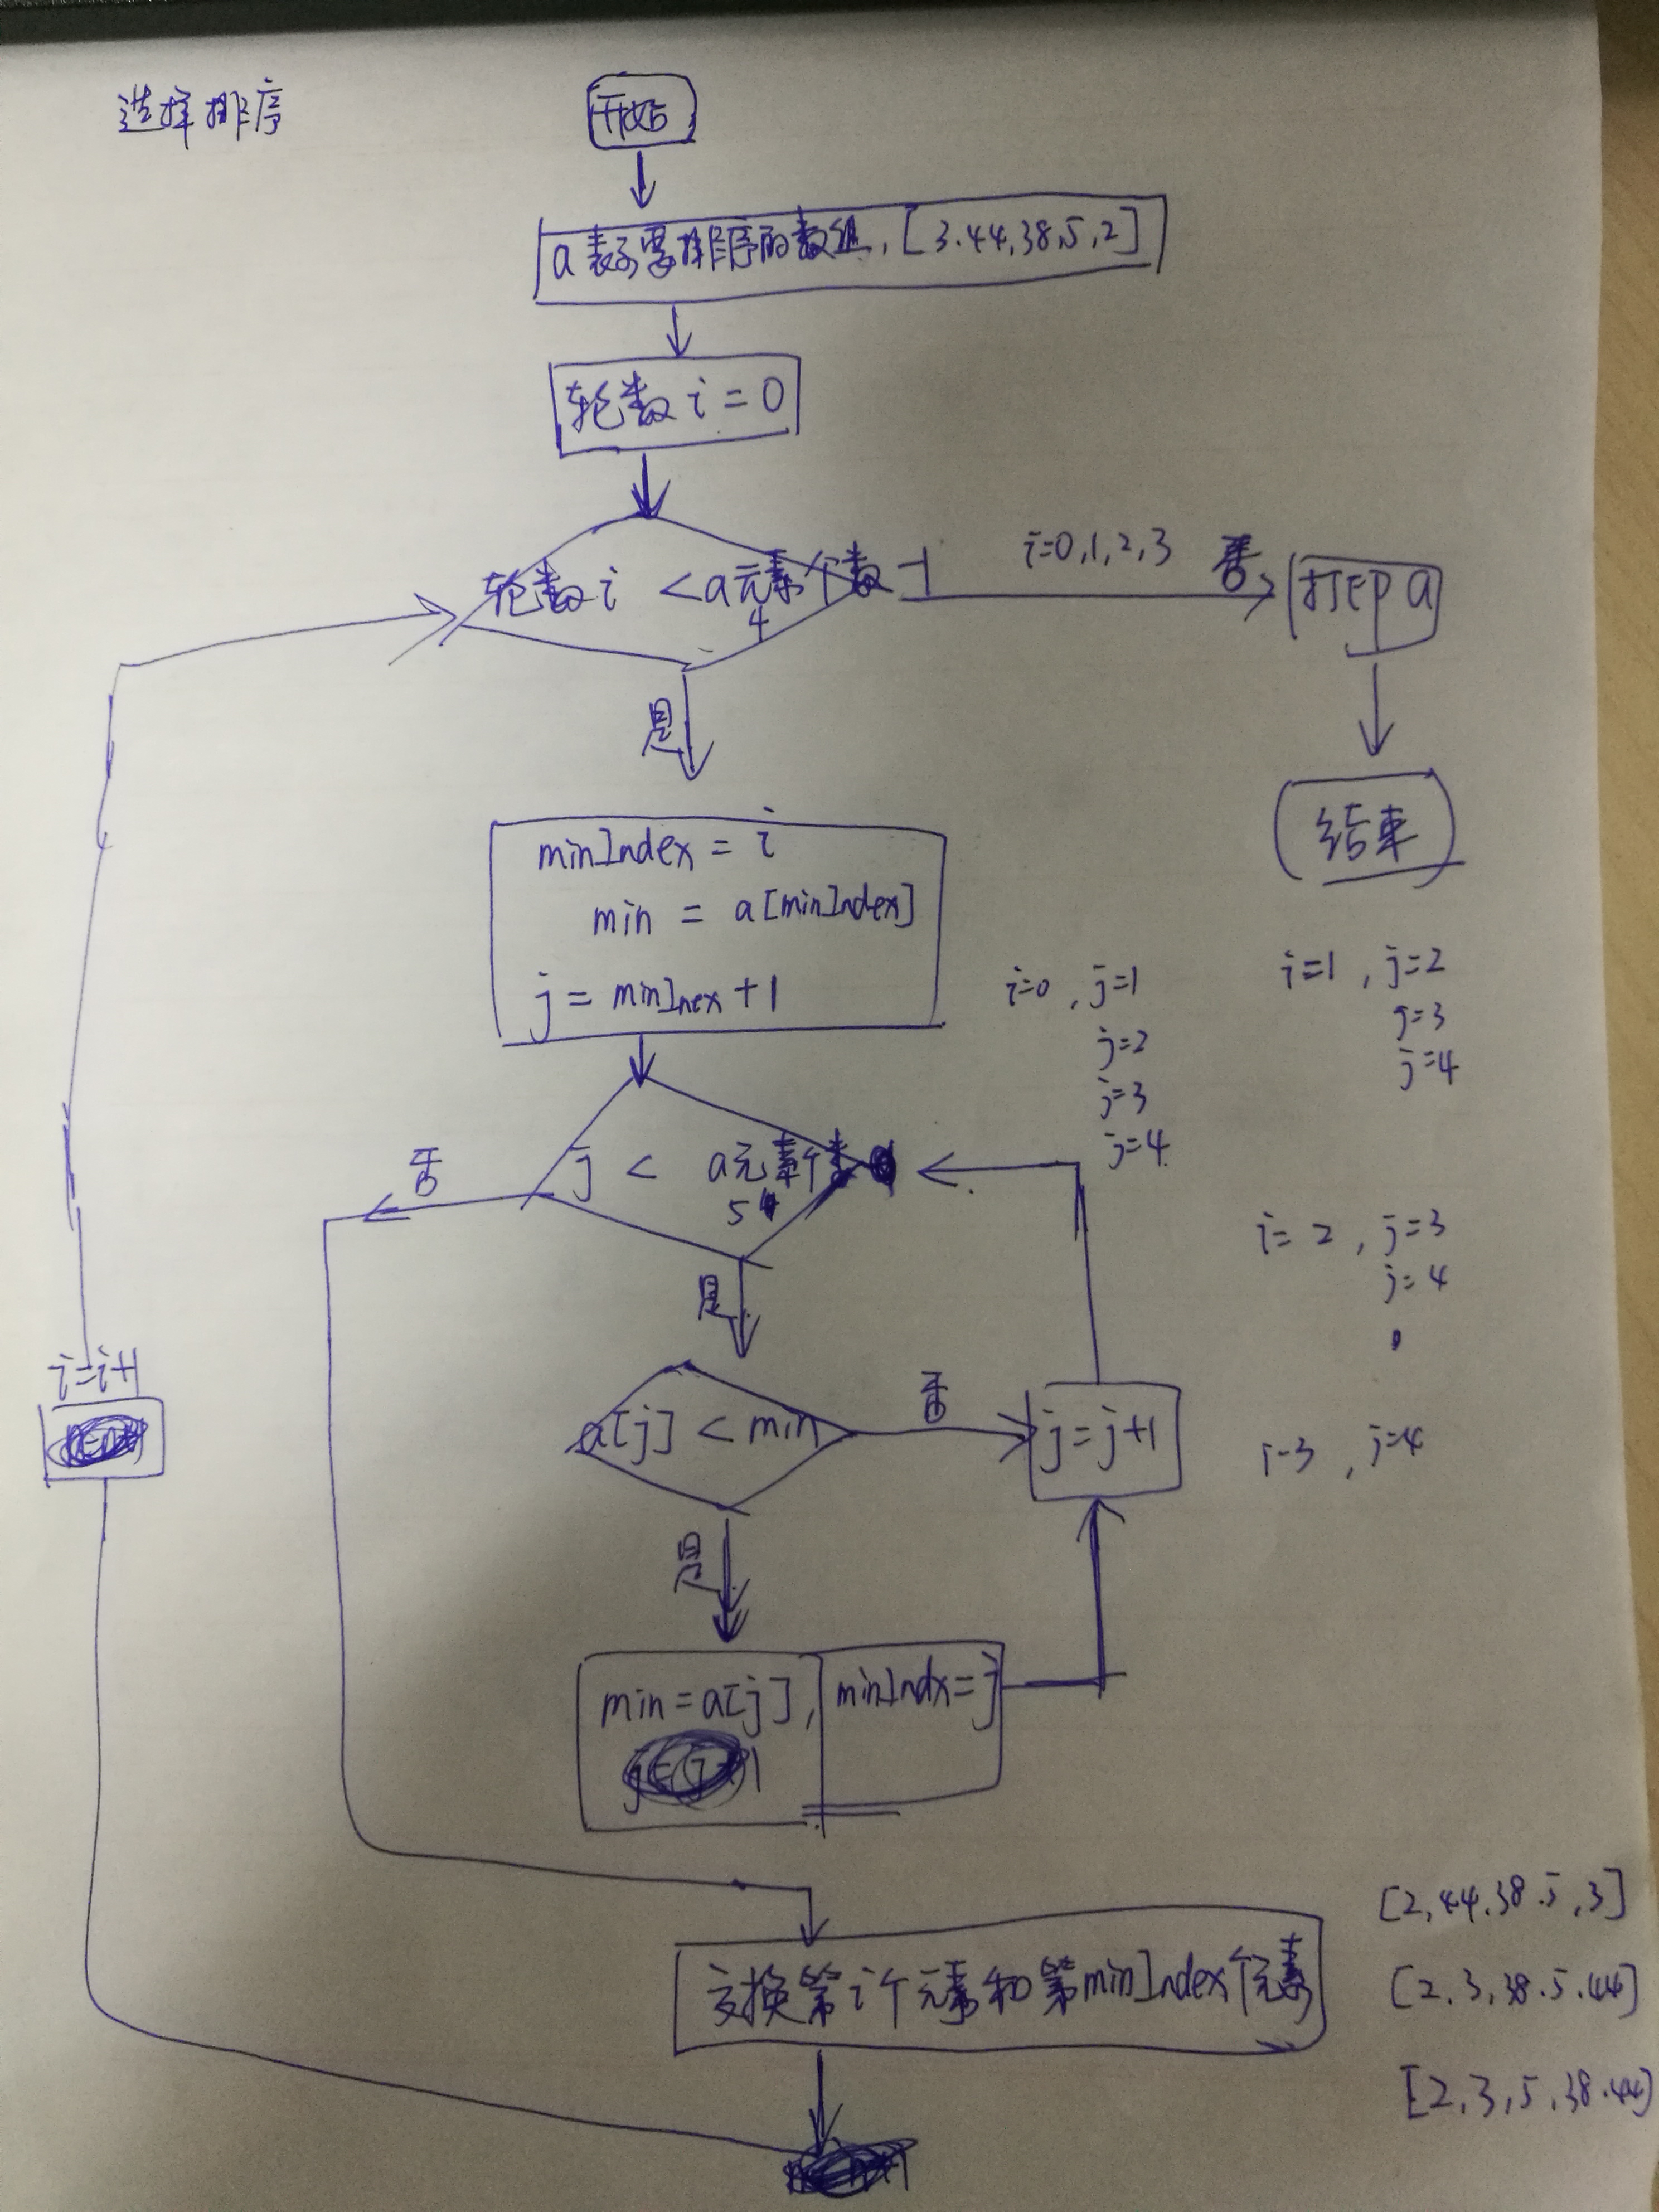 选择排序
开始
a 表示要排序的数组, [3.44,38,5,2]
轮数 i = 0
轮数 i < a元素个数 -1
4
i=0,1,2,3 否
打印 a
是
结束
minIndex = i
min = a[minIndex]
j = minInex + 1
i=0, j=1
j=2
j=3
j=4
i=1, j=2
j=3
j=4
否
j < a元素个数
5
是
i=2, j=3
j=4
i=i+1
a[j] < min
否
j=j+1
i=3, j=4
是
min=a[j], minIndx=j
[2,44.38.5,3]
交换第i个元素和第minIndex个元素
[2.3,38.5.44]
[2.3,5,38.44]